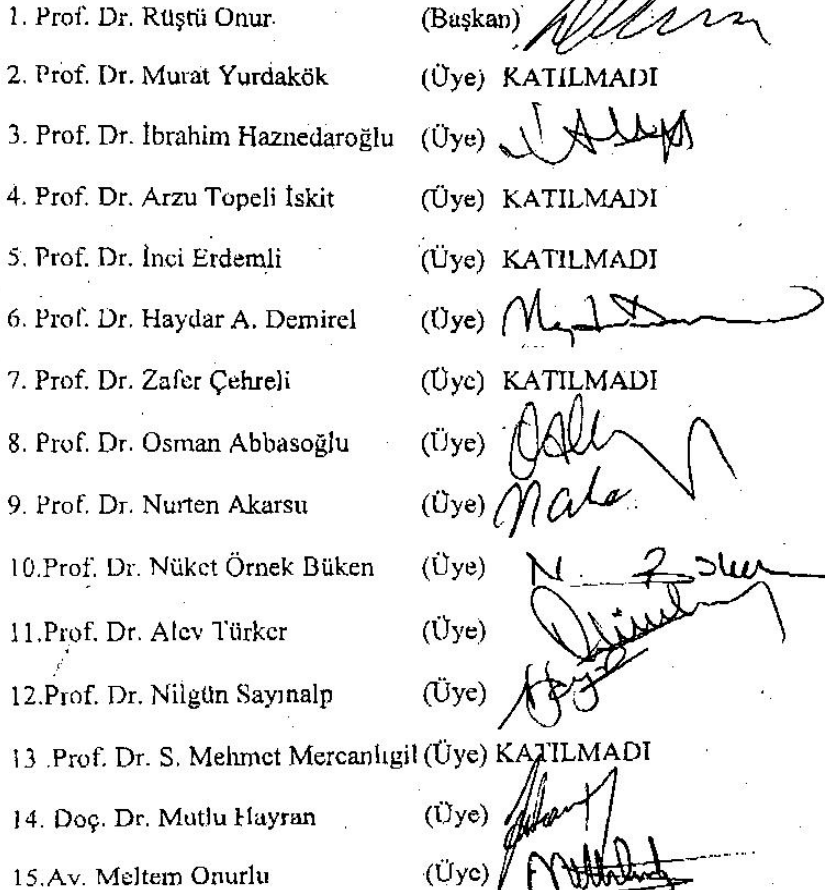 1. Prof. Dr. Rüştü Onur (Başkan)
2. Prof. Dr. Murat Yurdakök (Üye) KATILMADI
3. Prof. Dr. İbrahim Haznedaroğlu (Üye)
4. Prof. Dr. Arzu Topeli İskit (Üye) KATILMADI
5. Prof. Dr. İnci Erdemli (Üye) KATILMADI
6. Prof. Dr. Haydar A. Demirel (Üye)
7. Prof. Dr. Zafer Çehreli (Üye) KATILMADI
8. Prof. Dr. Osman Abbasoğlu (Üye)
9. Prof. Dr. Nurten Akarsu (Üye)
10.Prof. Dr. Nüket Örnek Büken (Üye)
11.Prof. Dr. Alev Türker (Üye)
12.Prof. Dr. Nilgün Sayınalp (Üye)
13 .Prof. Dr. S. Mehmet Mercanlıgil (Üye) KATILMADI
14. Doç. Dr. Mutlu Hayran (Üye)
15.Av. Meltem Onurlu (Üye)